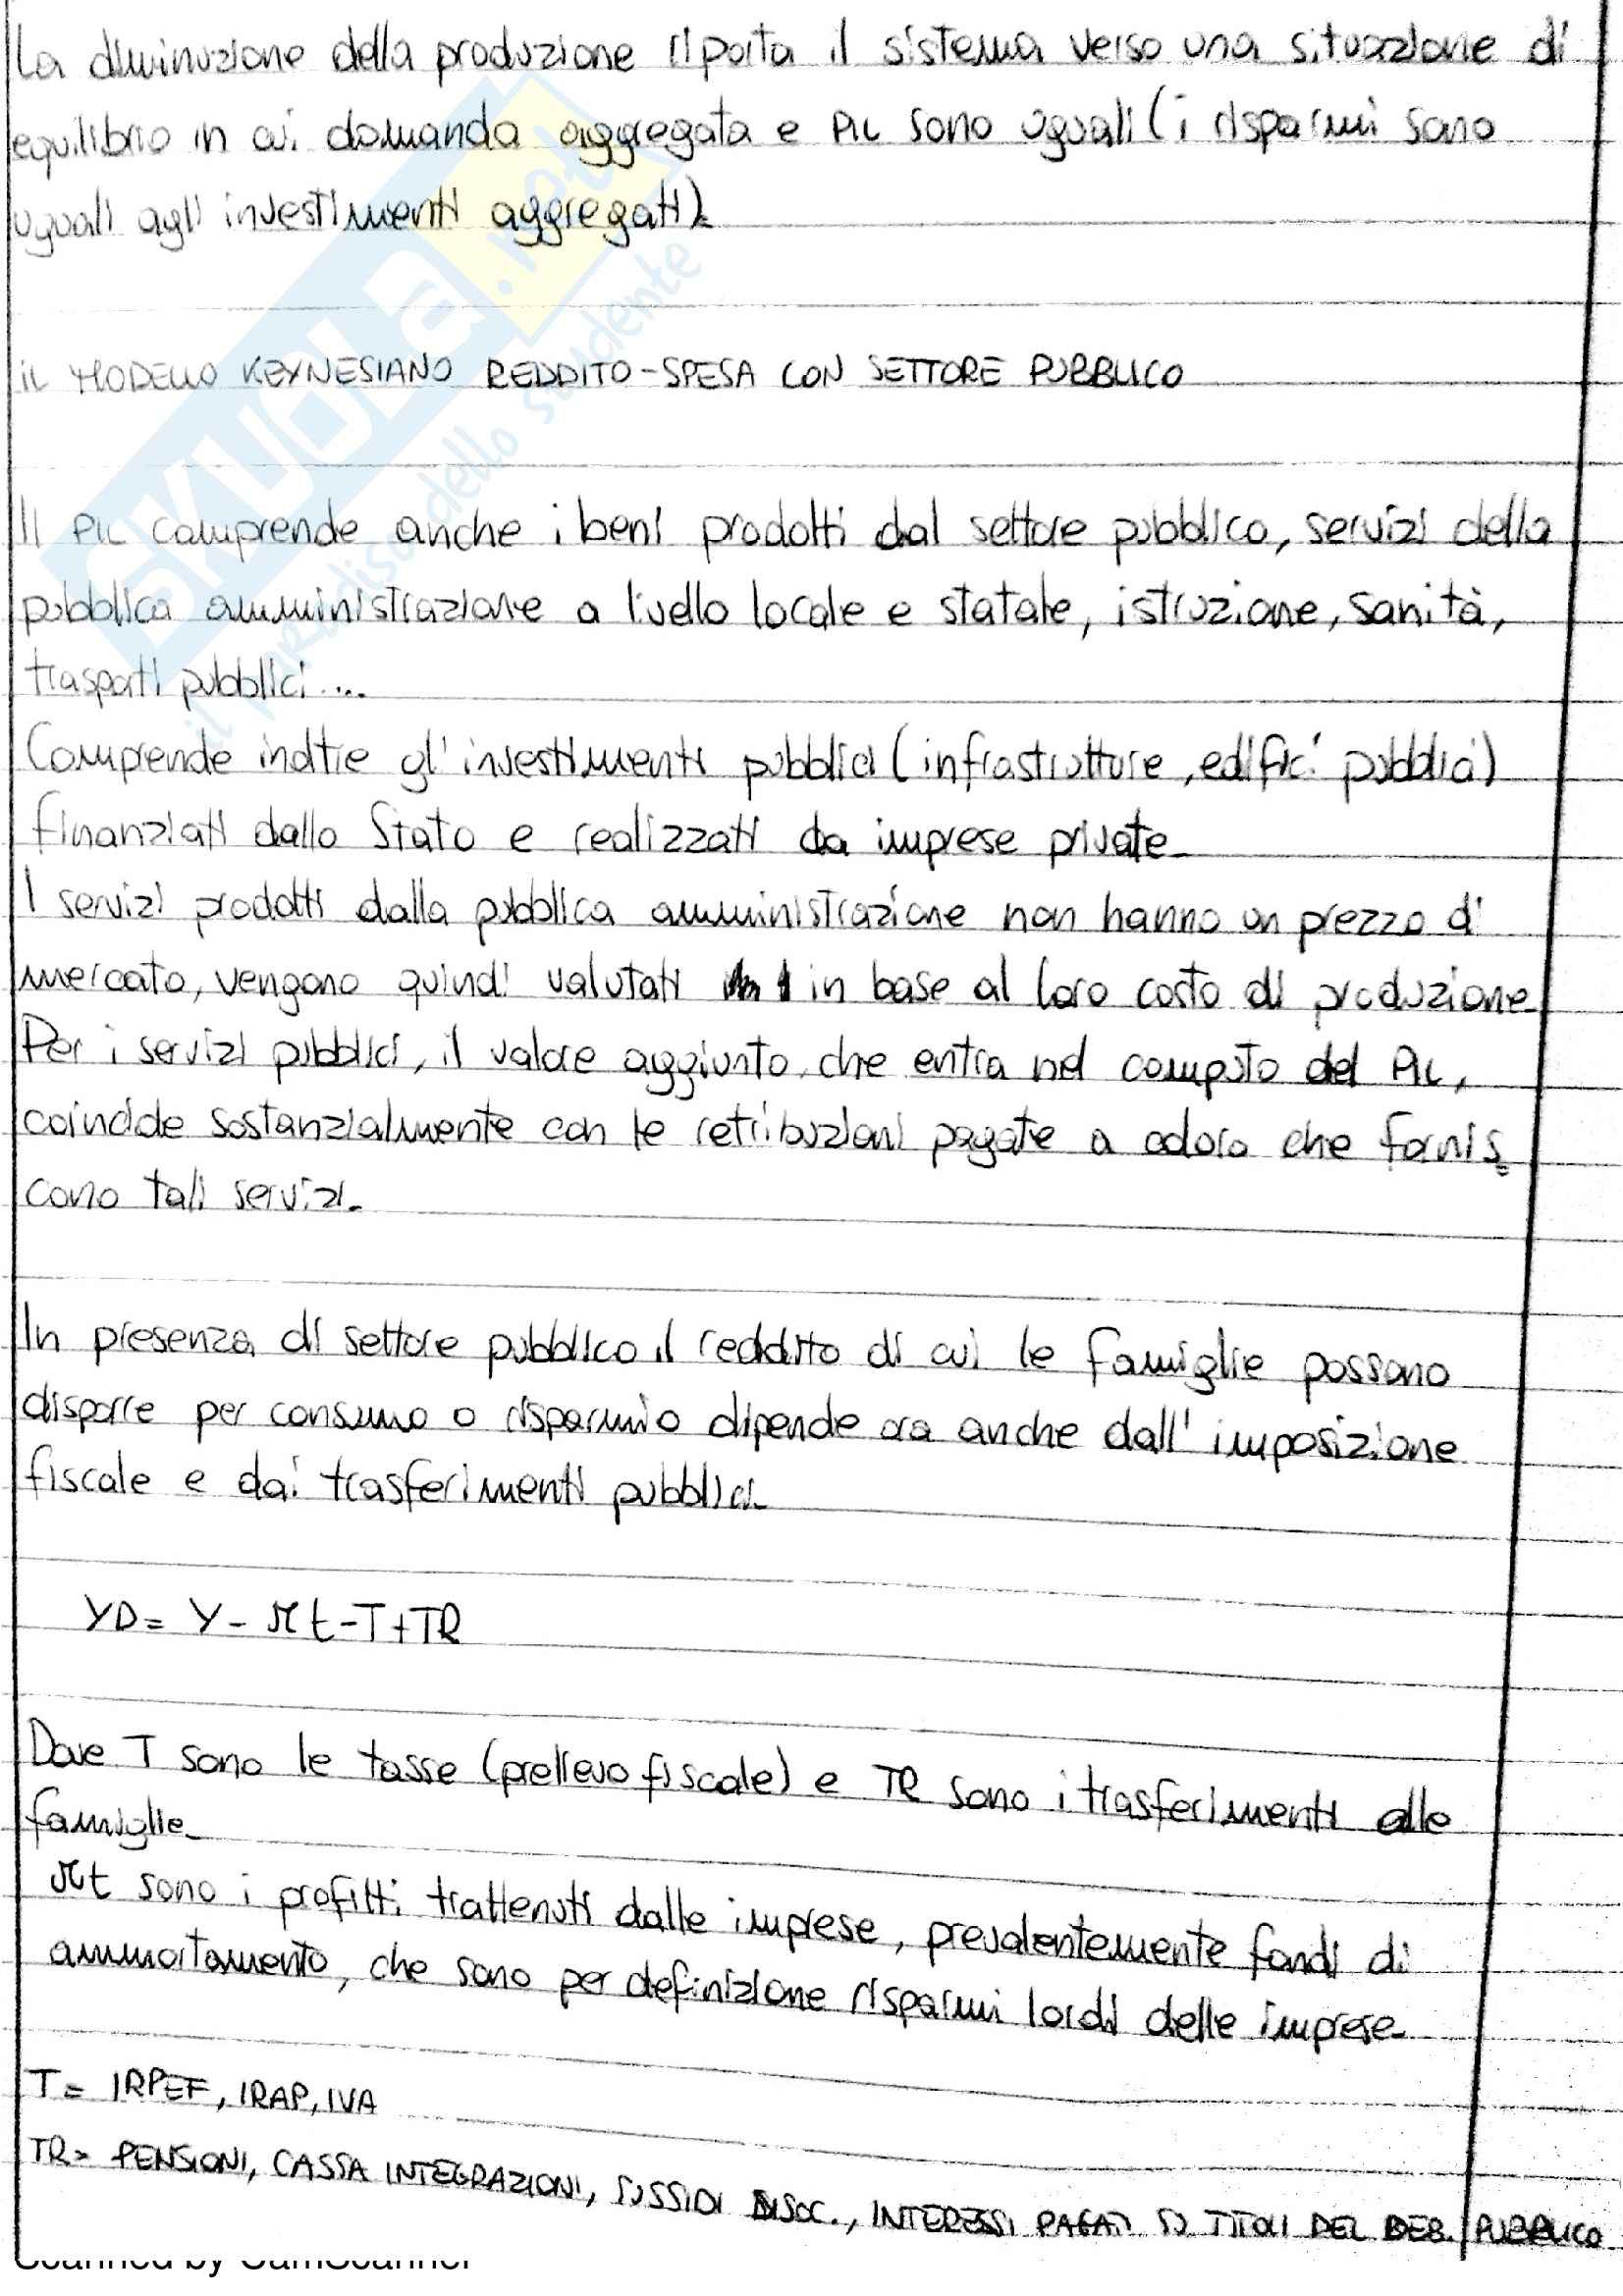 La diminuzione della produzione riporta il sistema verso una situazione di
equilibrio in cui domanda aggregata e PIL sono uguali (i risparmi sono
uguali agli investimenti aggregati).
IL MODELLO KEYNESIANO REDDITO-SPESA CON SETTORE PUBBLICO
Il PIL comprende anche i beni prodotti dal settore pubblico, servizi della
pubblica amministrazione a livello locale e statale, istruzione, sanità,
trasporti pubblici....
Comprende inoltre gl'investimenti pubblici (infrastrutture, edifici pubblici)
finanziati dallo Stato e realizzati da imprese private.
I servizi prodotti dalla pubblica amministrazione non hanno un prezzo di
mercato, vengono quindi valutati in base al loro costo di produzione.
Per i servizi pubblici, il valore aggiunto, che entra nel computo del PIL,
coincide sostanzialmente con le retribuzioni pagate a coloro che fornis
cono tali servizi.
In presenza di settore pubblico il reddito di cui le famiglie possono
disporre per consumo o risparmio dipende ora anche dall'imposizione
fiscale e dai trasferimenti pubblici.
YD = Y - πt - T + TR
Dove T sono le tasse (prelievo fiscale) e TR sono i trasferimenti alle
famiglie.
πt sono i profitti trattenuti dalle imprese, prevalentemente fondi di
ammortamento, che sono per definizione risparmi lordi delle imprese.
T = IRPEF, IRAP, IVA
TR = PENSIONI, CASSA INTEGRAZIONI, SUSSIDI DISOC., INTERESSI PAGATI SU TITOLI DEL DEB. PUBBLICO
Scanned by CamScanner
SKUOLA.NET
il paradiso dello studente